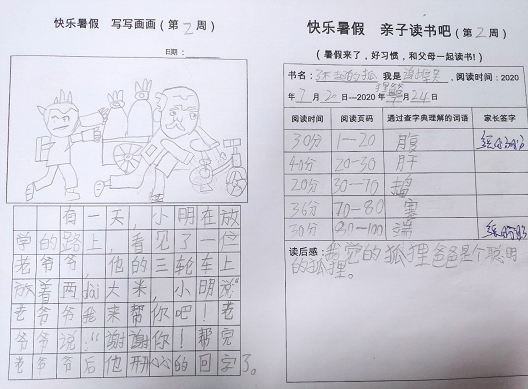 快乐暑假 写写画画（第 2 周）
日期：
有一天，小明在放
学的路上，看见了一位
老爷爷，他的三轮车上
放着两dài大米，小明说“
老爷爷我来帮你吧！老
爷爷说：“谢谢你！帮完
老爷爷后他开心的回字了。
快乐暑假 亲子读书吧（第 2 周）
（暑假来了，好习惯，和父母一起读书！）
书名： 的狐 我是 ，阅读时间：2020
年 7 月 20 日—2020 年 月 24 日
阅读时间 阅读页码 通过查字典理解的词语 家长签字
30分 1—20 腹
40分 20—30
20分 30—70
36分 70—80
30分 80—100
读后感：我觉的狐狸爸爸是个聪明
的狐狸。